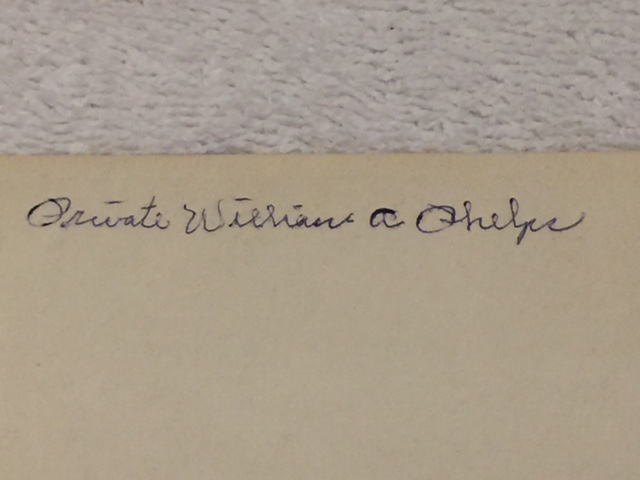 Private William a Phelps